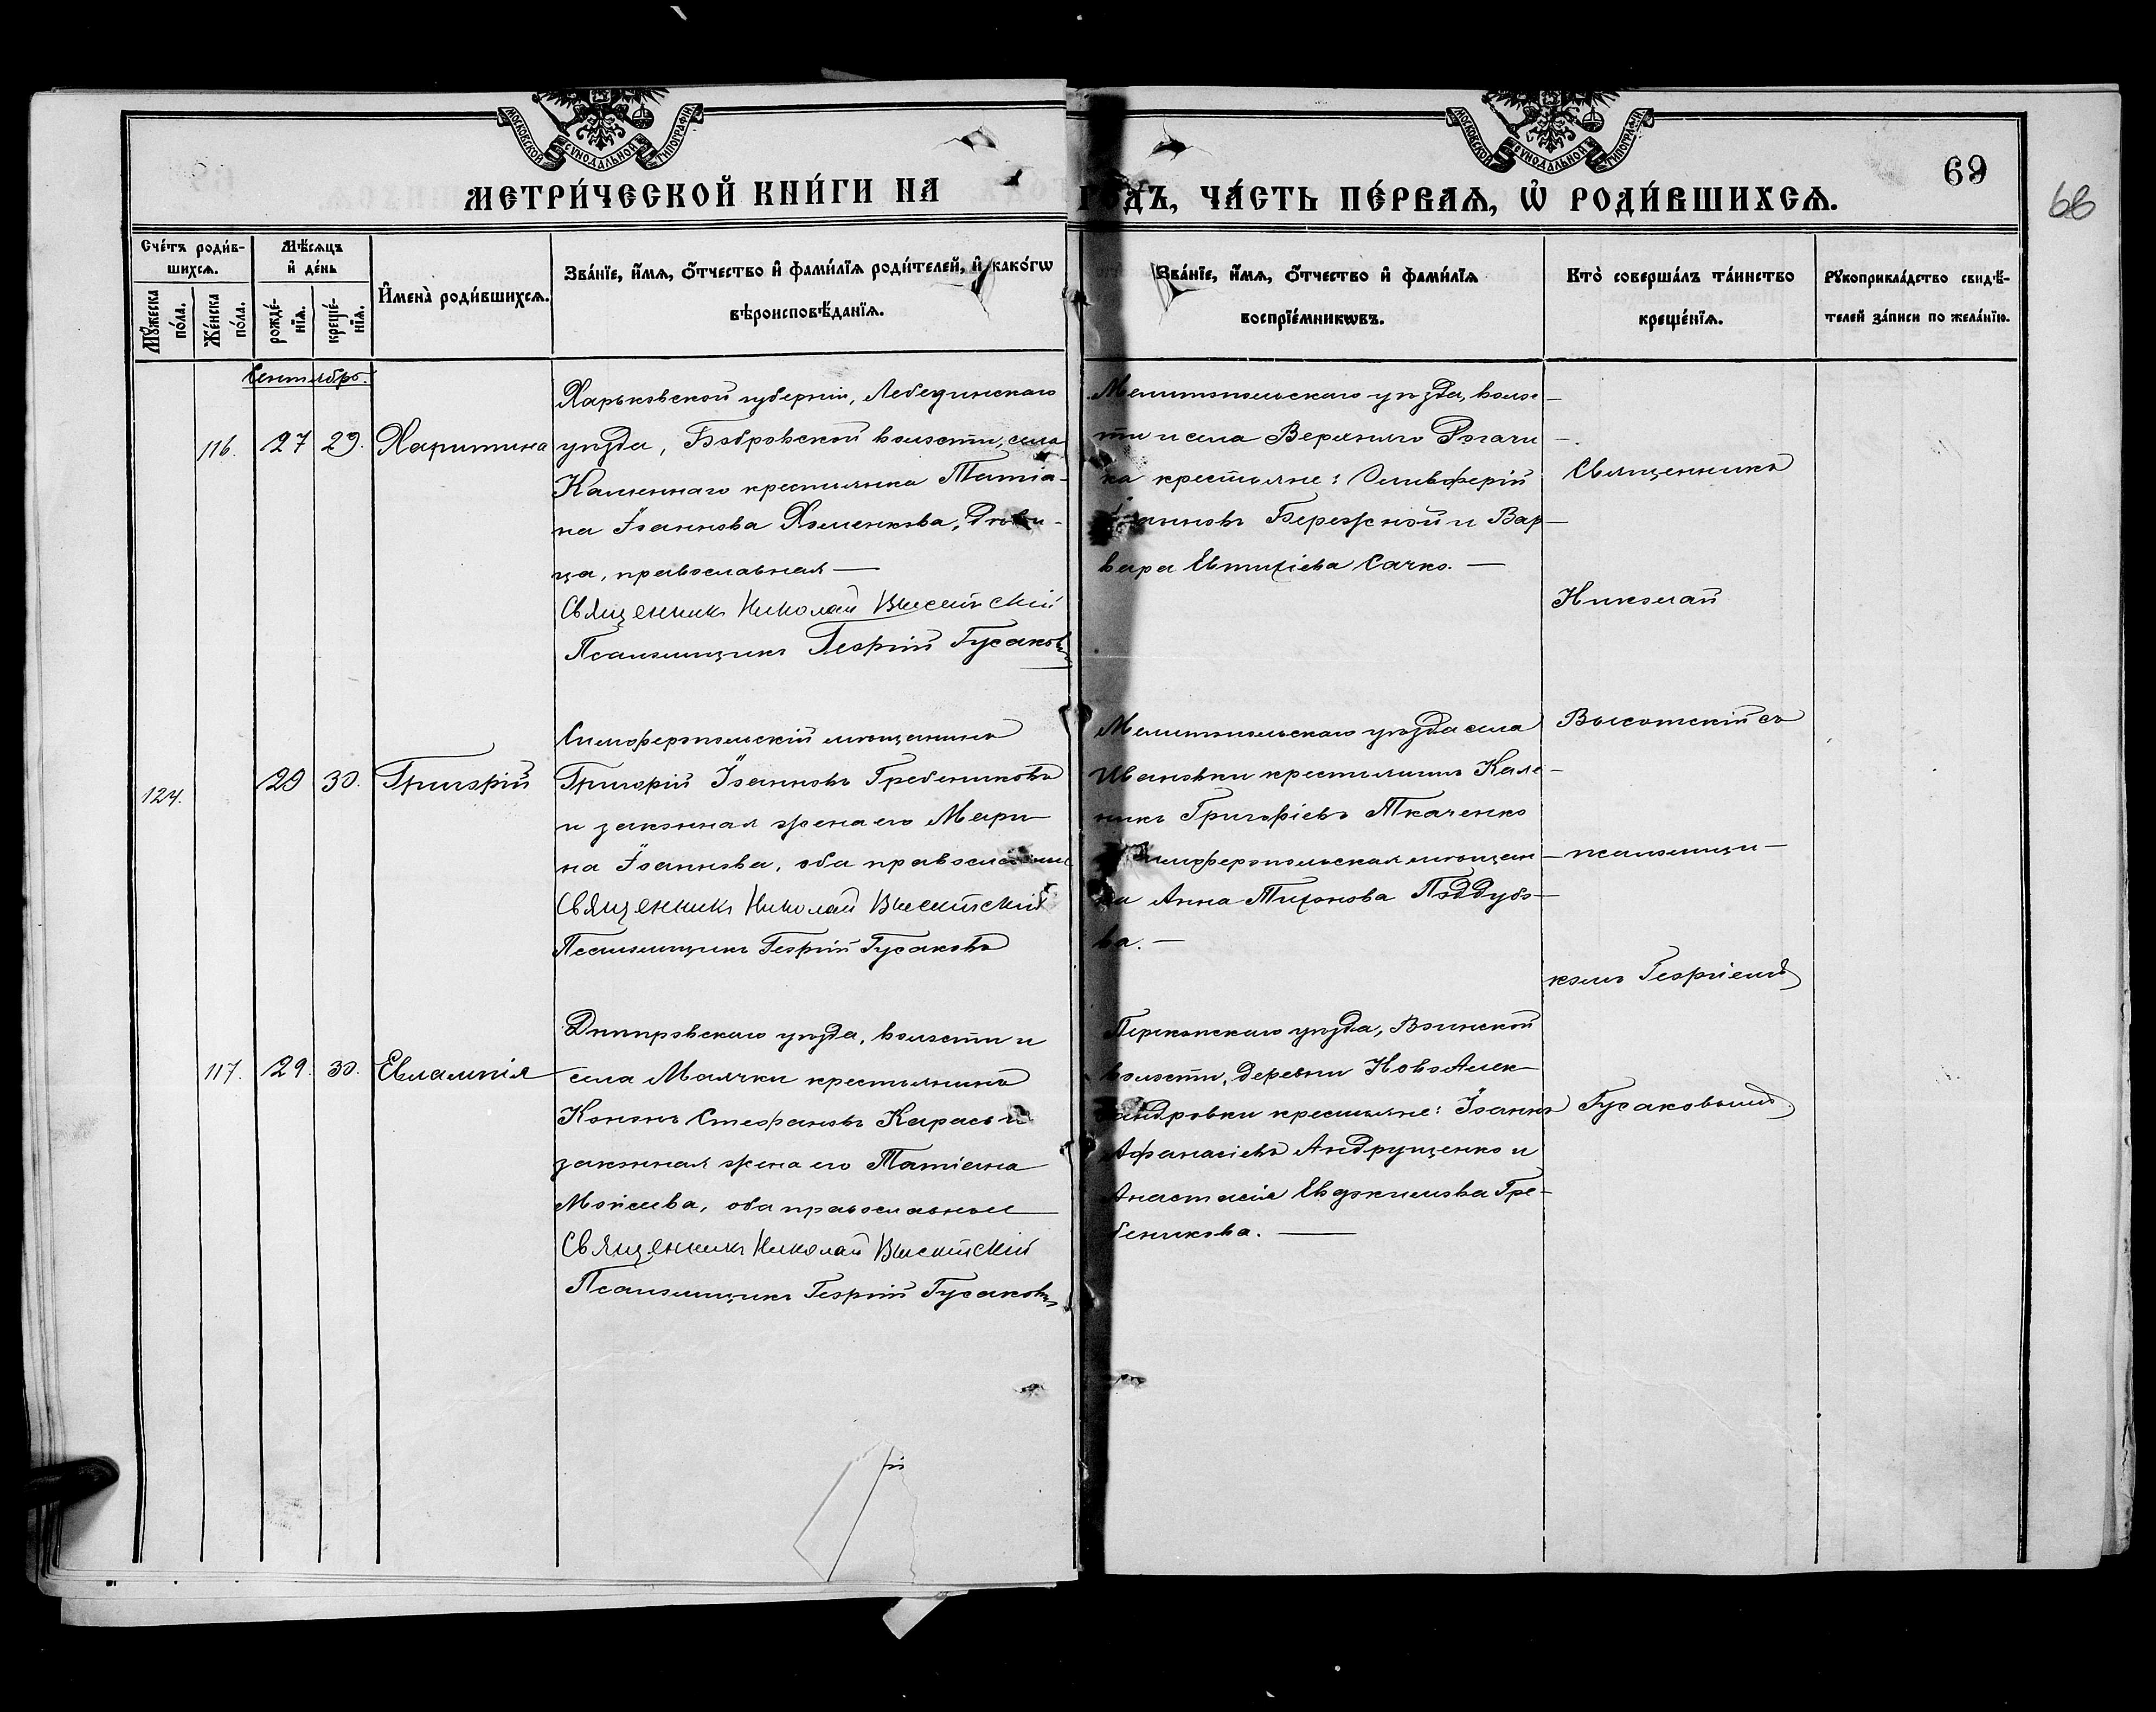 МОСКОВСКОЙ СѴНОДАЛЬНОЙ ТИПОГРАФІИ
МОСКОВСКОЙ СѴНОДАЛЬНОЙ ТИПОГРАФІИ
69
68
МЕТРИ́ЧЕСКОЙ КНИ́ГИ НА ГОДЪ, ЧА́СТЬ ПЕ́РВАѦ, Ѡ҆ РОДИ́ВШИХСѦ.
Сче́тъ роди́в-
шихсѧ.
Мѣ́сѧцъ
и҆ де́нь
Мꙋ́жеска
по́ла.
Же́нска
по́ла.
рожде́-
нїѧ.
креще́-
нїѧ.
И҆мена̀ роди́вшихсѧ.
Зва́нїе, и҆́мѧ, ѻ҆́тчество и҆ фами́лїѧ роди́телей, и҆ како́гѡ
вѣроисповѣ́данїѧ.
Зва́нїе, и҆́мѧ, ѻ҆́тчество и҆ фами́лїѧ
воспрїе́мникѡвъ.
Кто̀ соверша́лъ та́инство
креще́нїѧ.
Рꙋкоприкла́дство свидѣ́-
телей за́писи по жела́нїю.
Сентябрь.
116. 27 29. Харитина
Харьковской губерніи, Лебединскаго
уѣзда, Бобровской волости, села
Каменнаго крестьянка Татіа-
на Іоаннова Хоменкова, дѣви-
ца, православная —
Священникъ Николай Высотскій
Псаломщикъ Георгій Гусаковъ
Мелитопольскаго уѣзда, волос-
ти и села Верхняго Рогачи-
ка крестьяне: Елевферій
Іоанновъ Бережной и Вар-
вара Евтихіева Сачко. —
Священникъ
Николай
Высотскій съ
псаломщи-
комъ Георгіемъ
Гусаковымъ
124. 29 30. Григорій
Симферопольскій мѣщанинъ
Григорій Іоанновъ Гребениковъ
и законная жена его Мари-
на Іоаннова, оба православные
Священникъ Николай Высотскій
Псаломщикъ Георгій Гусаковъ
Мелитопольскаго уѣзда села
Ивановки крестьянинъ Кале-
никъ Григорьевъ Ткаченко
и Симферопольская мѣщан-
ка Анна Тихонова Поддубо-
ва. —
117. 29. 30. Евлампія
Днѣпровскаго уѣзда, волости и
села Маячки крестьянинъ
Кононъ Стефановъ Карась и
законная жена его Татіана
Моисеева, оба православные
Священникъ Николай Высотскій
Псаломщикъ Георгій Гусаковъ
Перекопскаго уѣзда, Воинской
волости, деревни НовоАлек-
сандровки крестьяне: Іоаннъ
Афанасіевъ Андрущенко и
Анастасія Евдокимова Гре-
беникова. —